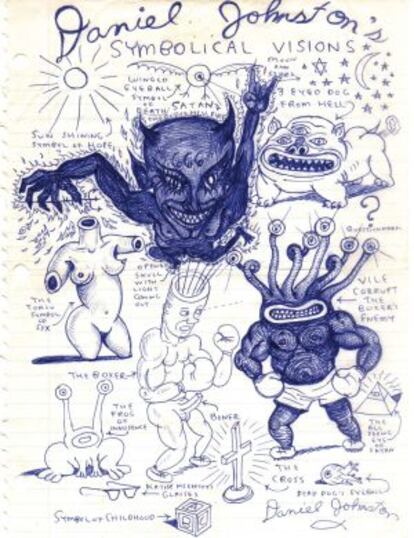 Daniel Johnston's
SYMBOLICAL VISIONS
WINGED
EYEBALL
SYMBOL
OF
DEATH
SATAN'S
MOON
AND
STARS
3 EYED DOG
FROM HELL
SUN SHINING
SYMBOL OF HOPE
666
?
QUESTION MARK
OPEN
SKULL
WITH
LIGHT
COMING
OUT
VILE
CORRUPT
THE
BOXER'S
ENEMY
THE
TORSO
SYMBOL
OF
SEX
THE BOXER
THE
FROG OF
INNOCENCE
BONER
THE
ALL
SEEING
EYE OF
SATAN
THE
CROSS
GLASSES
DEAD DOG'S EYEBALL
SYMBOL OF CHILDHOOD
Daniel Johnston